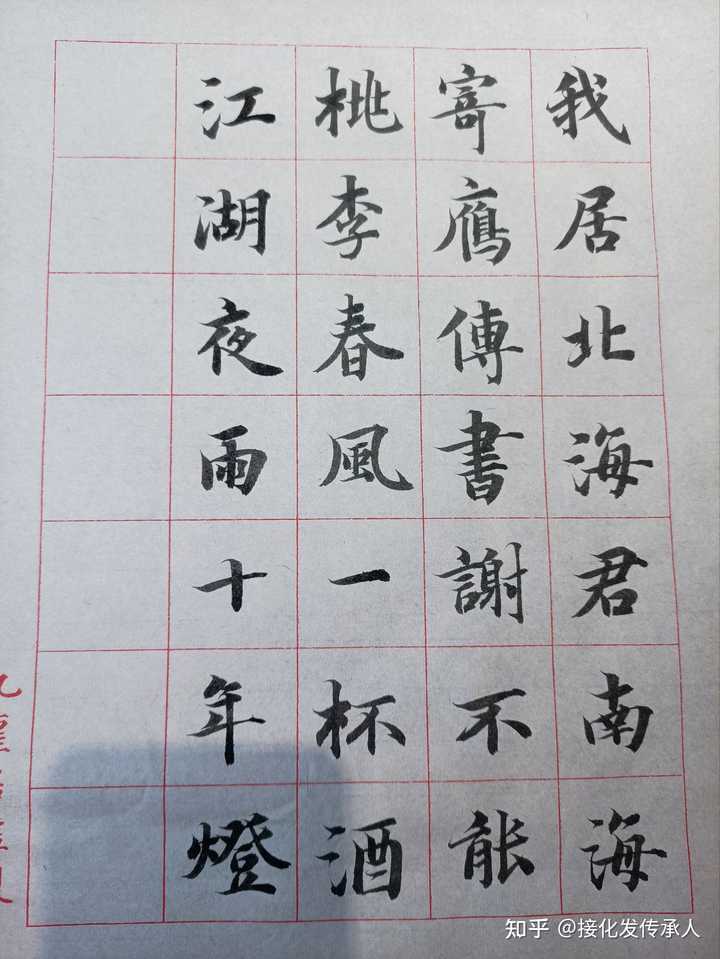 我居北海君南海
寄鴈傳書謝不能
桃李春風一杯酒
江湖夜雨十年燈
知乎 @接化发传承人